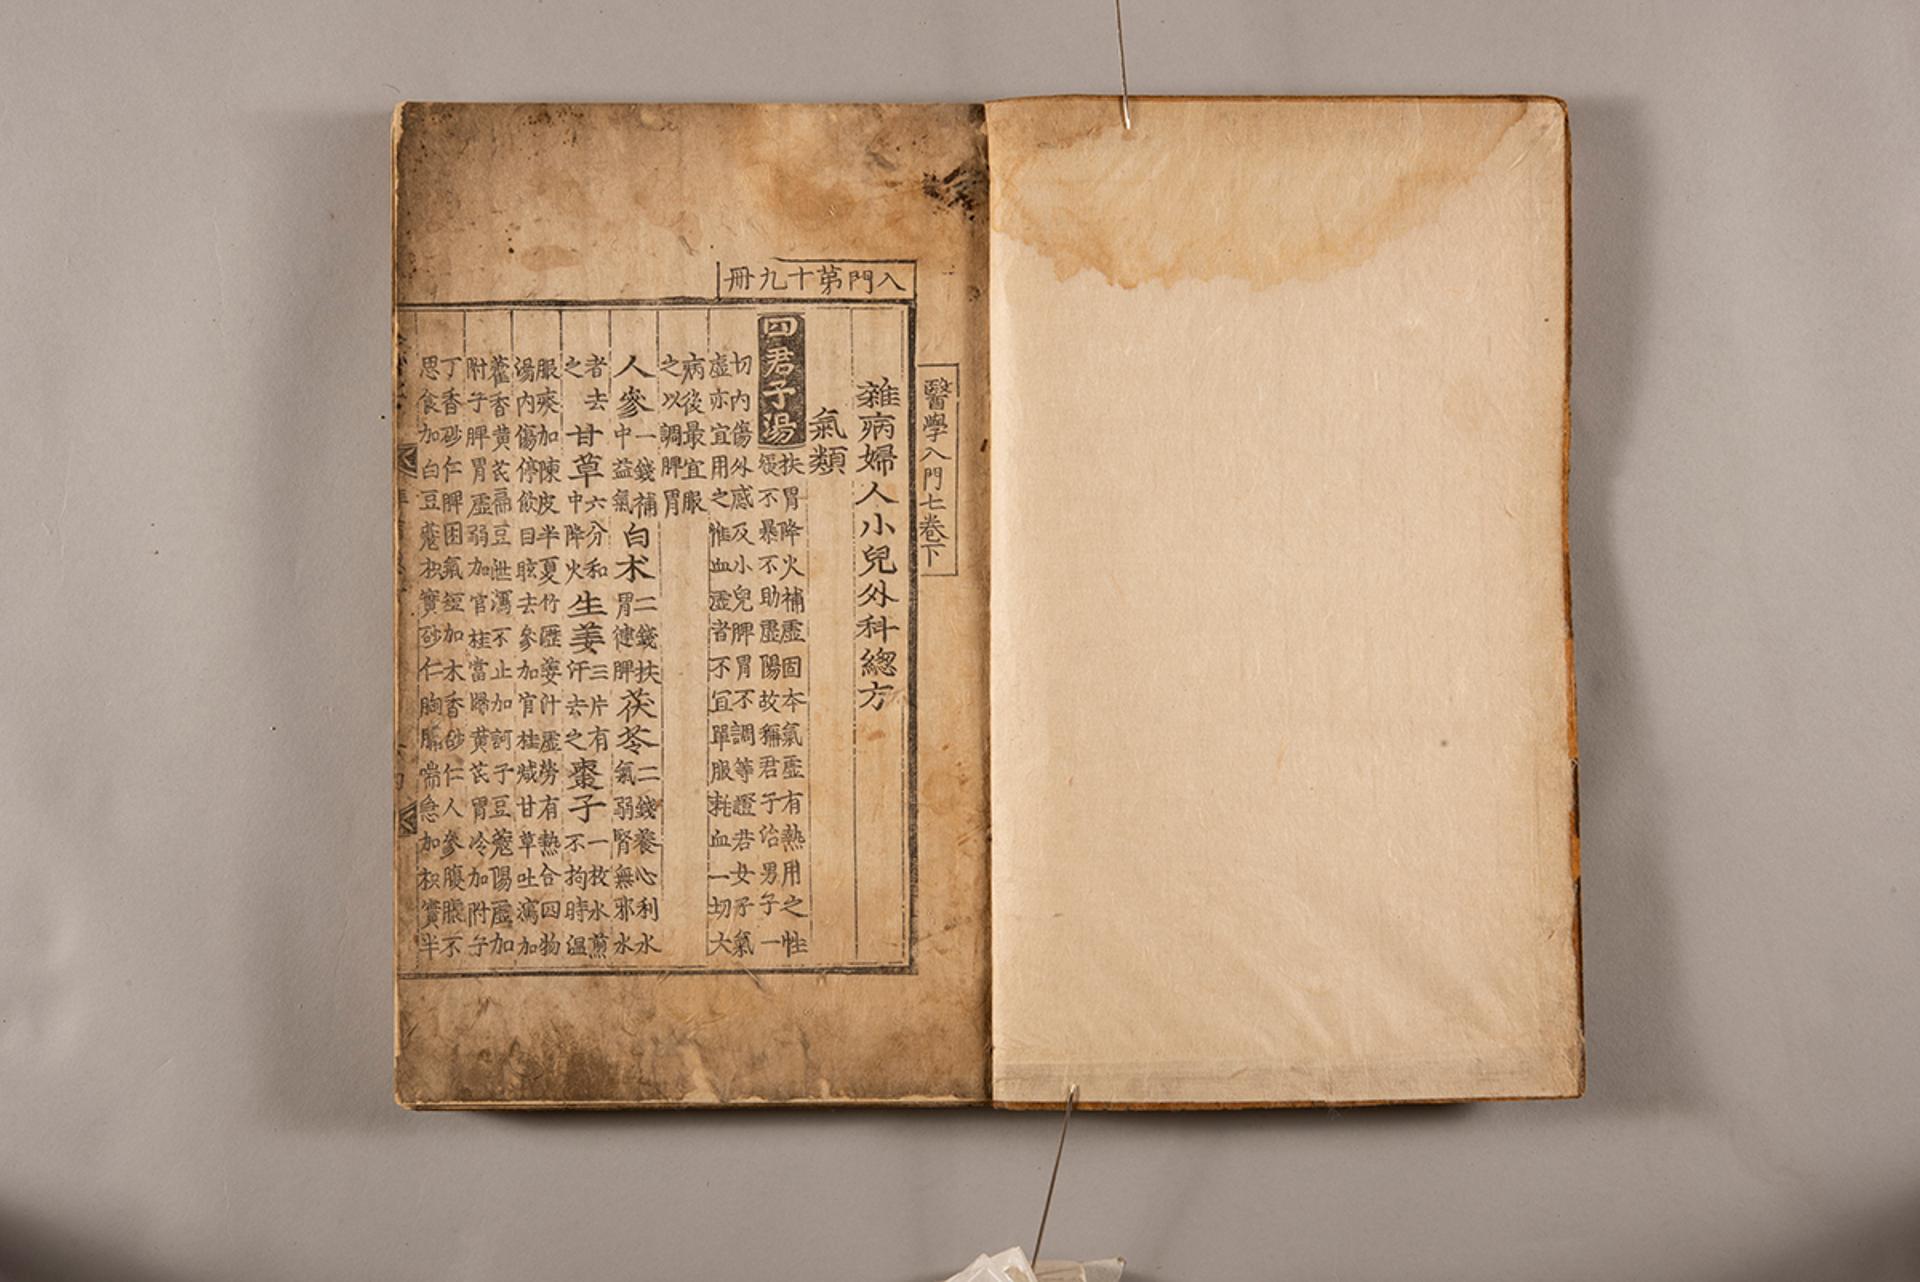 入門第十九冊
醫學入門七卷下
雜病婦人小兒外科總方
氣類
四君子湯 扶胃降火補虛固本氣虛有熱用之性
緩不暴不助虛陽故稱君子治男子一
切內傷外感及小兒脾胃不調等證若女子氣
虛亦宜用之惟血虛者不宜單服耗血一切大
病後最宜服
之以調脾胃
人參 一錢補中益氣 白朮 二錢扶胃健脾 茯苓 二錢養心利水氣弱腎無邪水
者去之 甘草 六分和中降火 生姜 三片有汗去之 棗子 一枚水煎不拘時溫
服痰加陳皮半夏竹瀝姜汁虛勞有熱合四物
湯內傷停飲目眩去參加官桂減甘草吐瀉加
藿香黃芪扁豆泄瀉不止加訶子豆蔻陽虛加
附子脾胃虛弱加官桂當歸黃芪胃冷加附子
丁香砂仁脾困氣短加木香砂仁人參腹脹不
思食加白豆蔻枳實砂仁胸膈喘急加枳實半